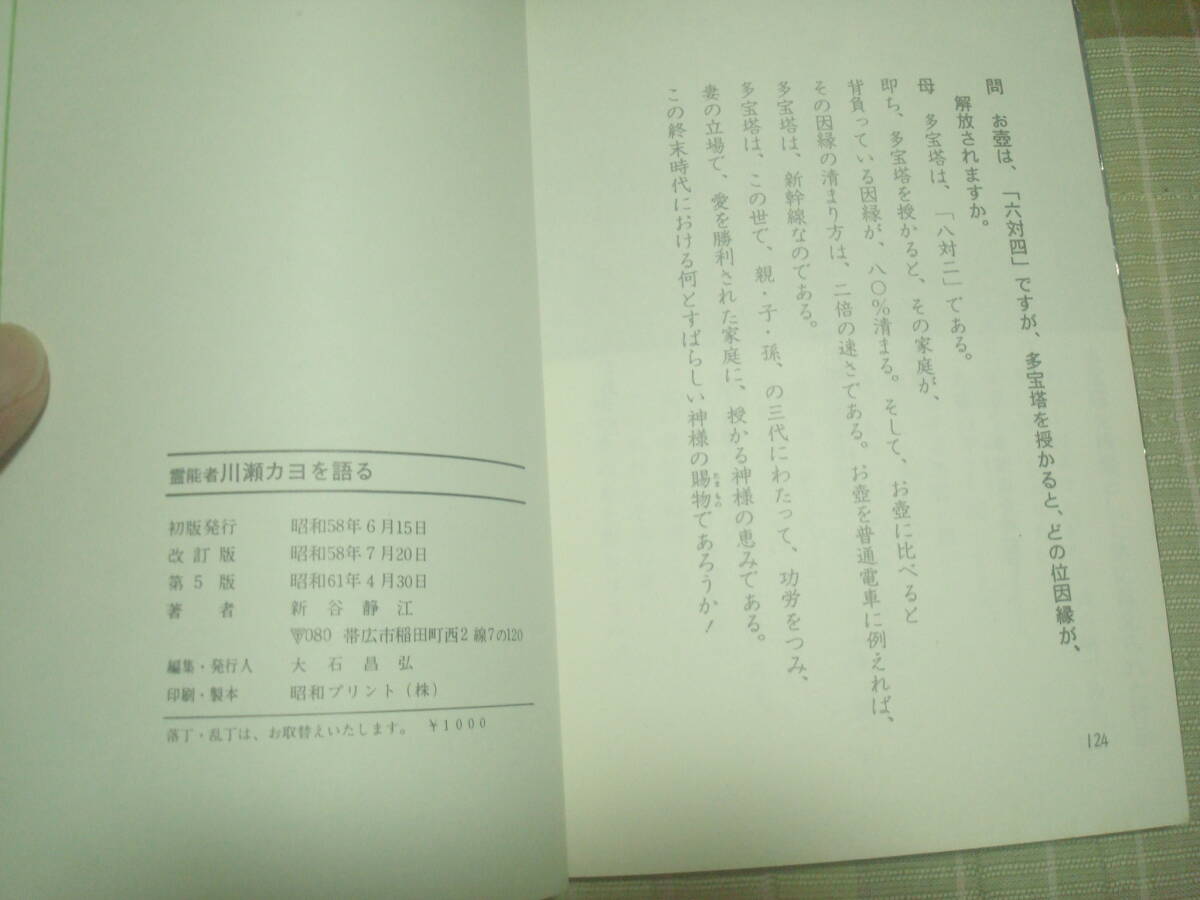 問　お壺は、「六対四」ですが、多宝塔を授かると、どの位因縁が、
解放されますか。
母　多宝塔は、「八対二」である。
即ち、多宝塔を授かると、その家庭が、
背負っている因縁が、八〇％清まる。そして、お壺に比べると
その因縁の清まり方は、二倍の速さである。お壺を普通電車に例えれば、
多宝塔は、新幹線なのである。
多宝塔は、この世で、親・子・孫、の三代にわたって、功労をつみ、
妻の立場で、愛を勝利された家庭に、授かる神様の恵みである。
この終末時代における何とすばらしい神様の賜物であろうか！
たまもの
124
霊能者川瀬カヨを語る
初版発行　昭和58年6月15日
改訂版　昭和58年7月20日
第5版　昭和61年4月30日
著者　新谷静江
〒080 帯広市稲田町西2線7の120
編集・発行人　大石昌弘
印刷・製本　昭和プリント（株）
落丁・乱丁は、お取替えいたします。　￥1000